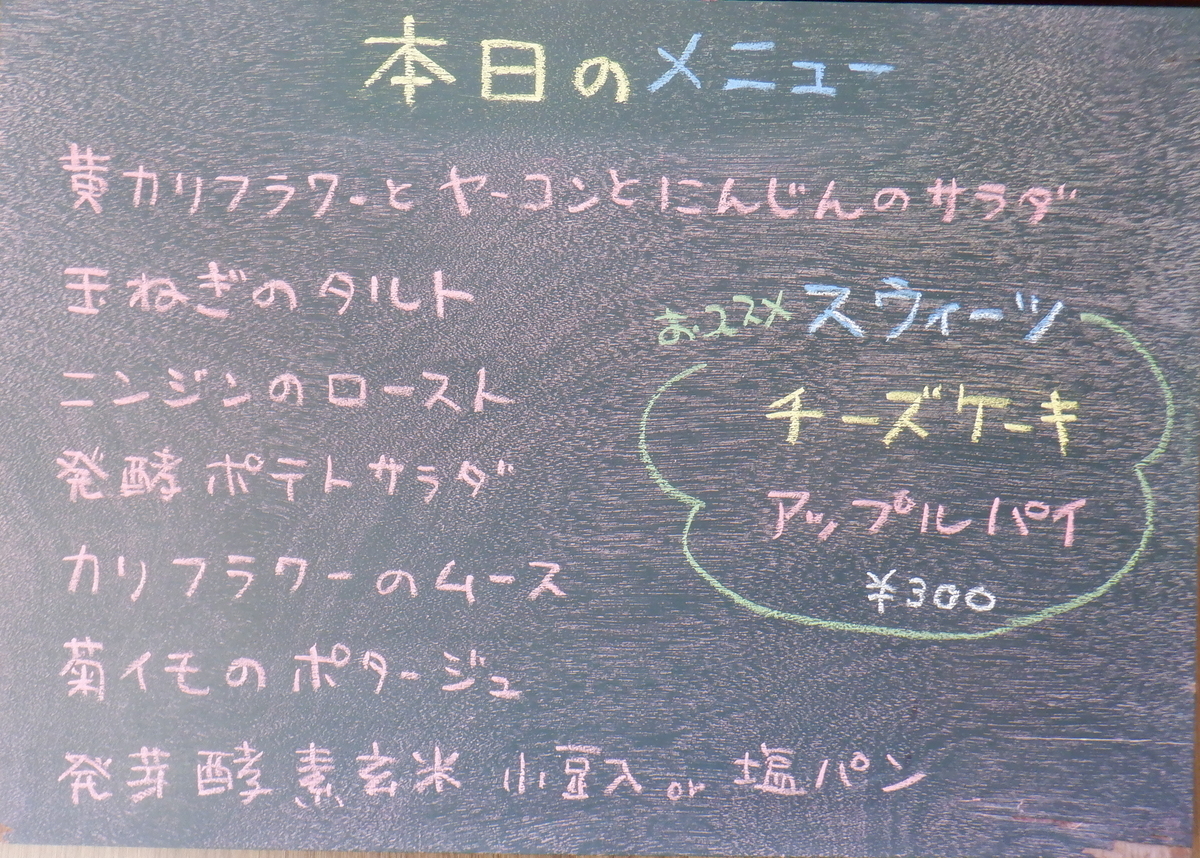 本日のメニュー
黄カリフラワーとヤーコンとにんじんのサラダ
玉ねぎのタルト
ニンジンのロースト
発酵ポテトサラダ
カリフラワーのムース
菊イモのポタージュ
発芽酵素玄米 小豆入 or 塩パン
おススメ スウィーツ
チーズケーキ
アップルパイ
¥300